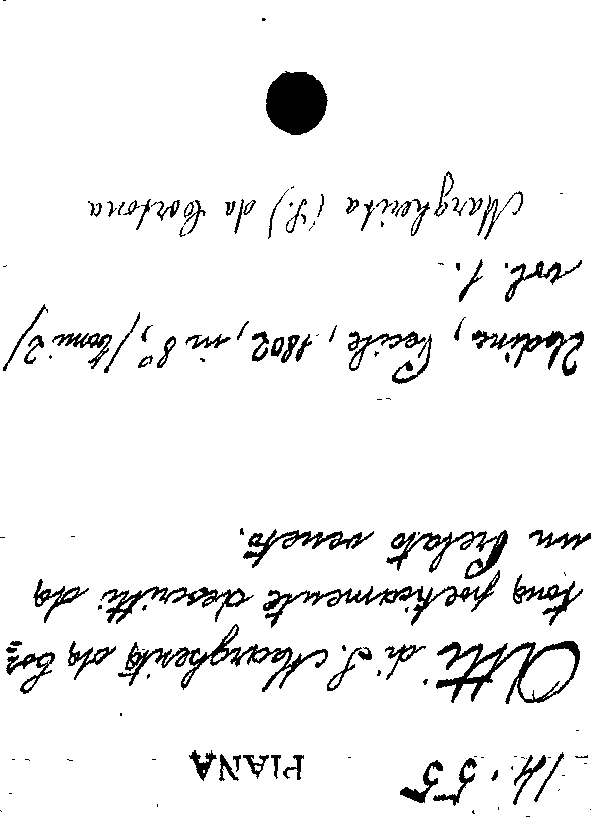 14.55 PIANA
Atti di S. Margherita da Cor=
tona poeticamente descritti da
un Prelato veneto.
Udine, Pecile, 1802, in 8°, (tomi 2)
vol. 1.
Margherita (S.) da Cortona